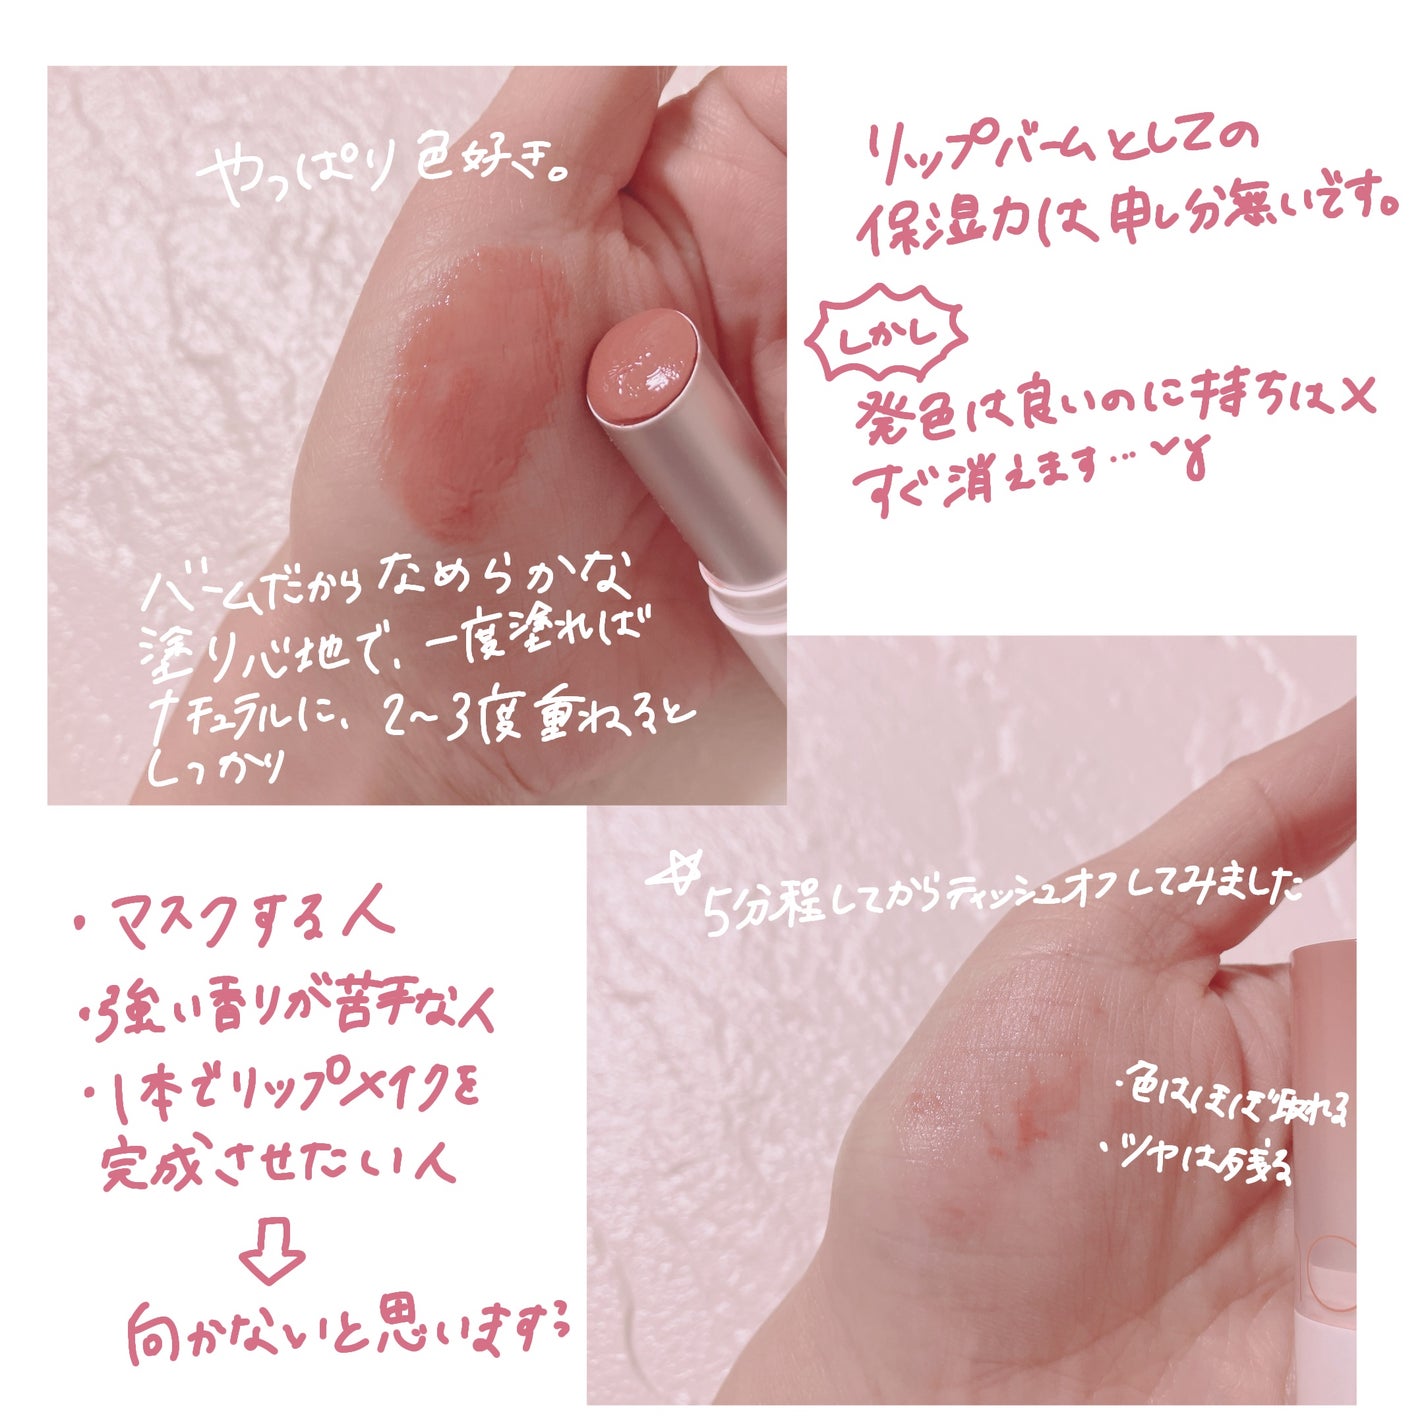 やっぱり色好き。
バームだからなめらかな
塗り心地で、一度塗れば
ナチュラルに、2〜3度重ねると
しっかり
リップバームとしての
保湿力は申し分無いです。
しかし
発色は良いのに持ちは×
すぐ消えます…
☆5分程してからティッシュオフしてみました
・色はほぼ取れる
・ツヤは残る
・マスクする人
・強い香りが苦手な人
・1本でリップメイクを
完成させたい人
⇩
向かないと思いますっ